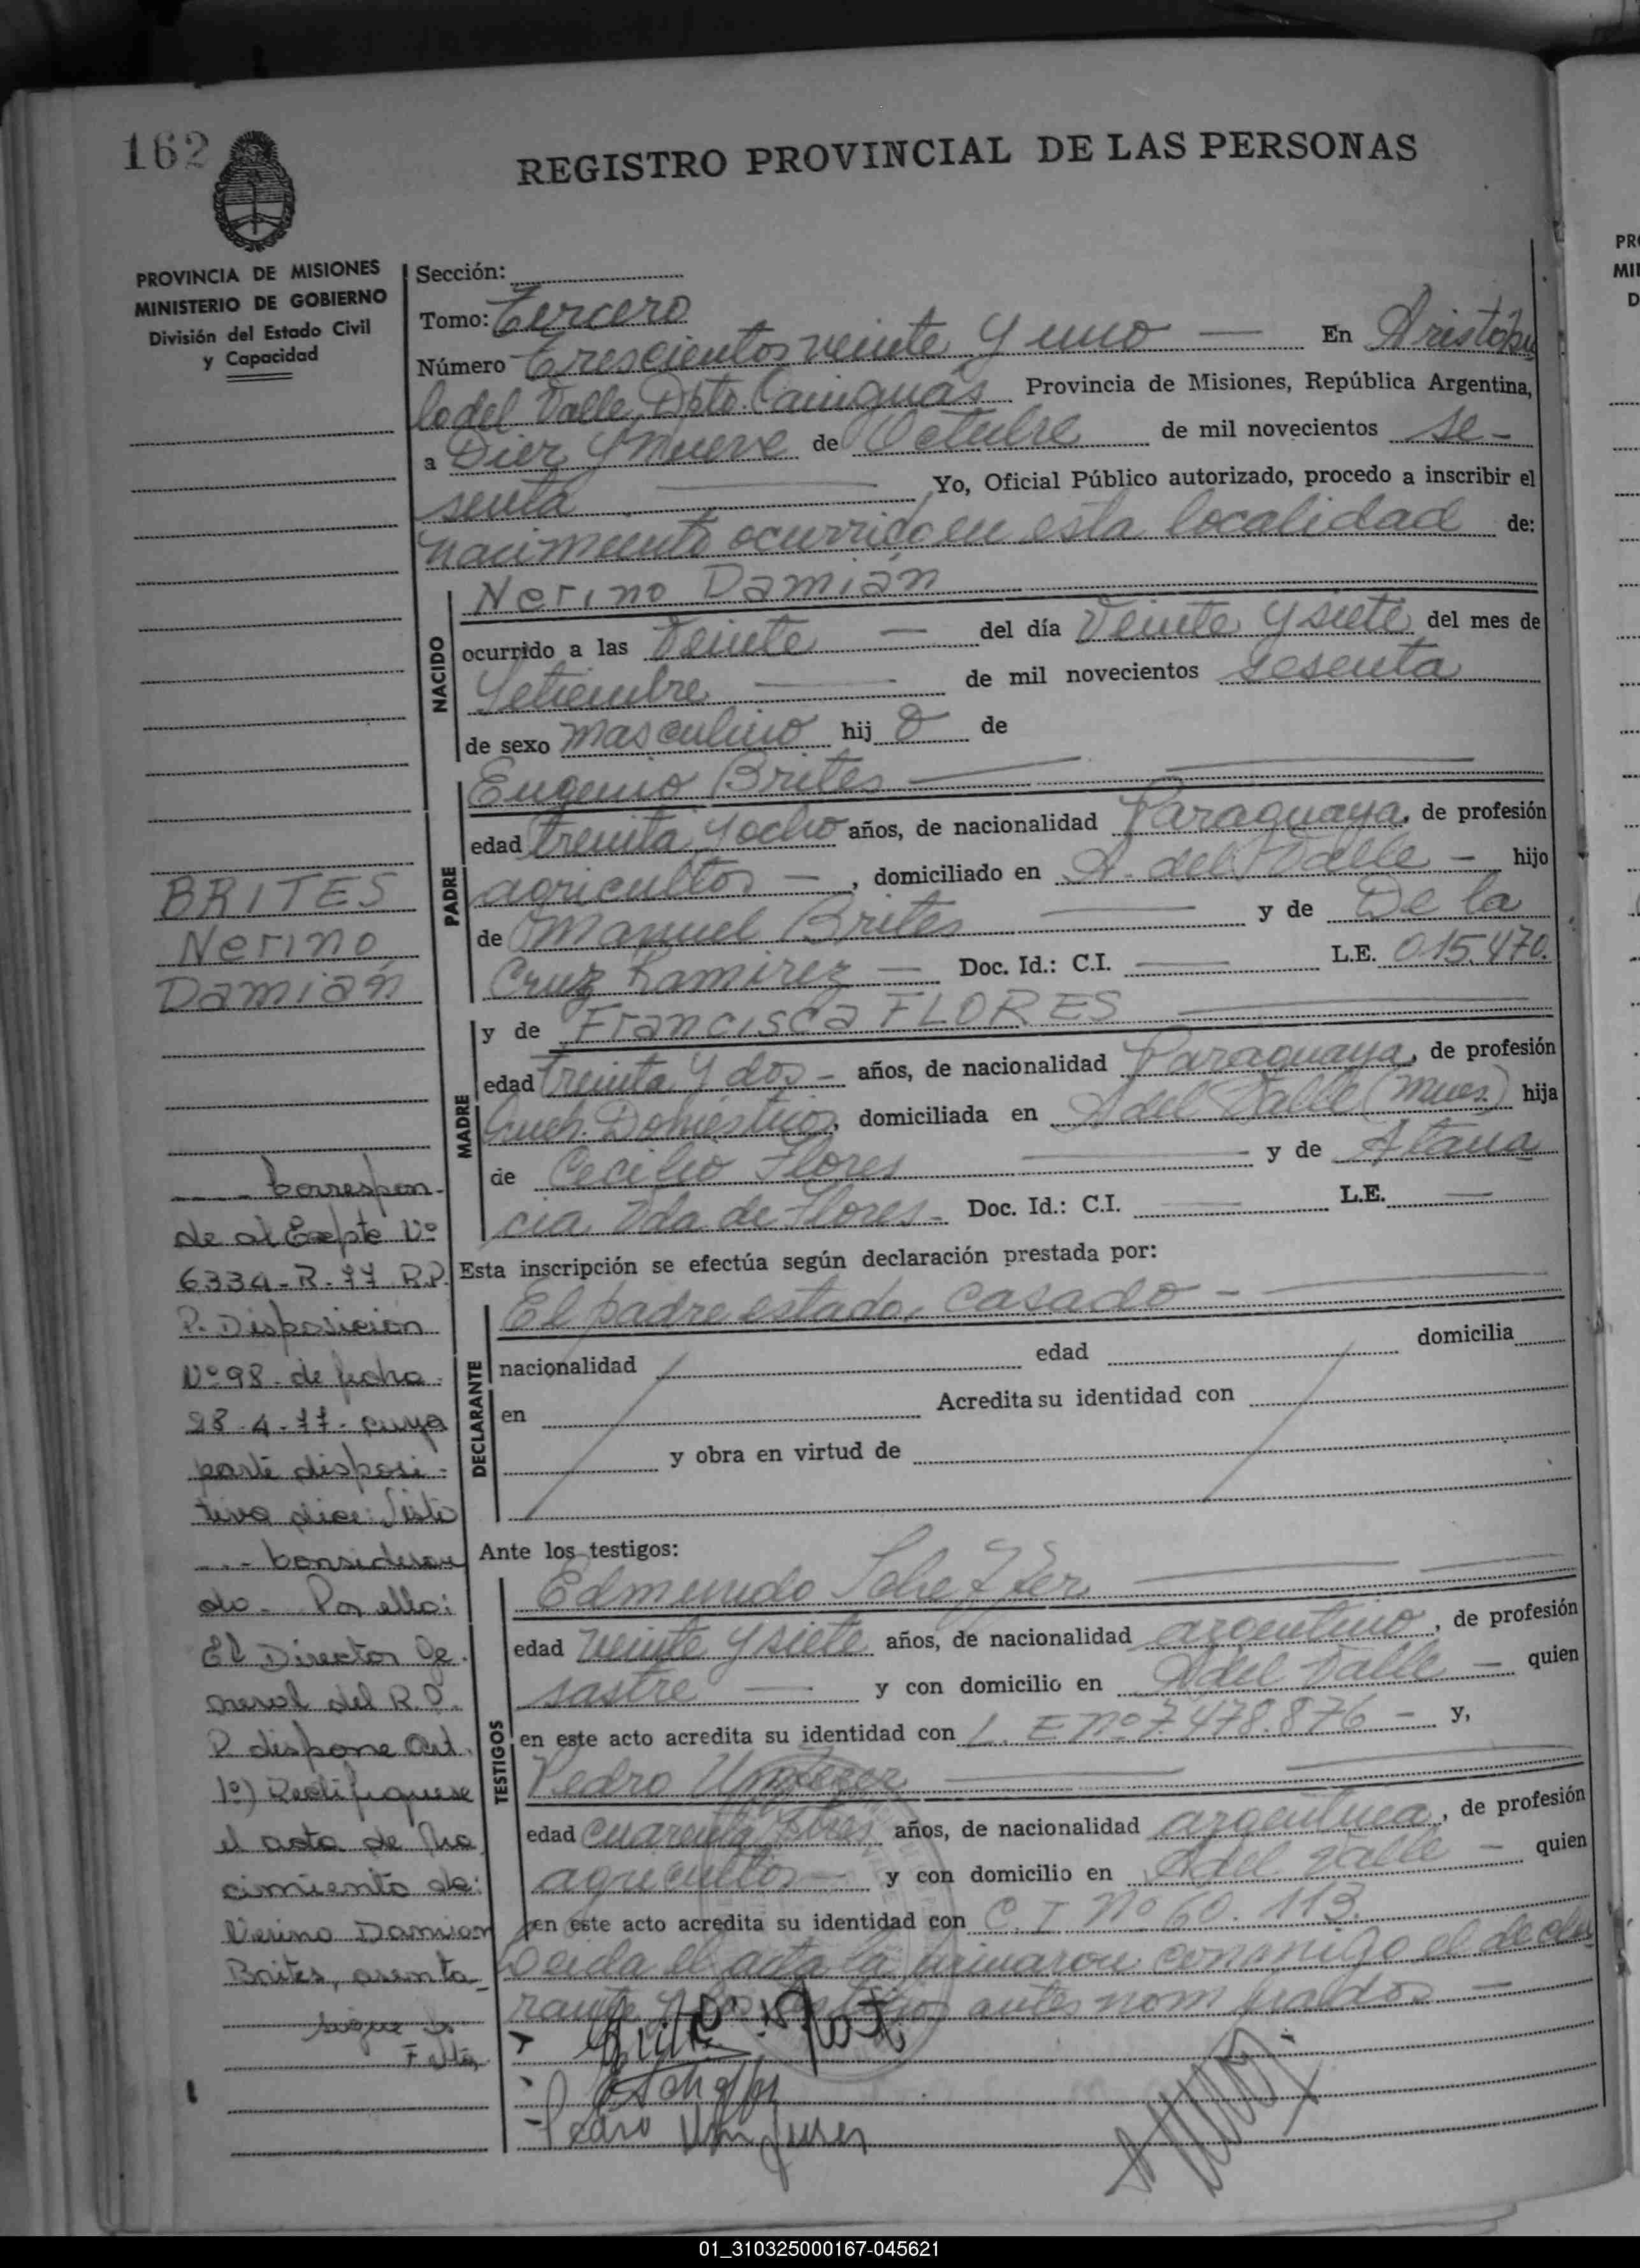 162
REGISTRO PROVINCIAL DE LAS PERSONAS
PROVINCIA DE MISIONES
MINISTERIO DE GOBIERNO
División del Estado Civil
y Capacidad
Sección:
Tomo: Tercero
Número Trescientos veinte y uno — En Aristóbu
lo del Valle, Dpto. Cainguás Provincia de Misiones, República Argentina,
a Diez y nueve de Octubre de mil novecientos se-
senta — Yo, Oficial Público autorizado, procedo a inscribir el
nacimiento ocurrido en esta localidad de:
NACIDO
Nerino Damián
ocurrido a las Veinte — del día Veinte y siete del mes de
Setiembre — de mil novecientos sesenta
de sexo masculino hij o de
PADRE
Eugenio Brites —
edad treinta y ocho años, de nacionalidad Paraguaya, de profesión
agricultor — , domiciliado en A. del Valle — hijo
de Manuel Brites — y de De la
Cruz Ramirez — Doc. Id.: C.I. — L.E. 015.470.
MADRE
y de Francisca FLORES —
edad treinta y dos — años, de nacionalidad Paraguaya, de profesión
Domésticos, domiciliada en A del Valle (Mnes.) hija
de Cecilio Flores — y de Atana
cia Vda de Flores - Doc. Id.: C.I. — L.E. —
Esta inscripción se efectúa según declaración prestada por:
DECLARANTE
El padre estado, casado - —
nacionalidad edad domicilia
en Acredita su identidad con
y obra en virtud de
Ante los testigos:
TESTIGOS
Edmundo —
edad veinte y siete años, de nacionalidad argentino, de profesión
sastre — y con domicilio en A del Valle — quien
en este acto acredita su identidad con L. E nº 7.478.876 — y,
Pedro —
edad cuarenta años, de nacionalidad argentina, de profesión
agricultor — y con domicilio en A del Valle — quien
en este acto acredita su identidad con C. I Nº 60. 113.
Leida el acta la firmaron conmigo el decla
rante y los testigos antes nombrados —
Pedro
BRITES
Nerino
Damián
---- Correspon-
de al Expte Nº
6334-R-77 R.P.
P. Disposición
Nº 98. de fecha
28-4-77- cuya
parte disposi-
tiva dice: Visto
--- Consideran
do- Por ello:
El Director Ge.
neral del R.P.
P. dispone Art.
1º) Rectifiquese
el acta de Na
cimiento de:
Nerino Damian
Brites, asenta
sigue
01_310325000167-045621